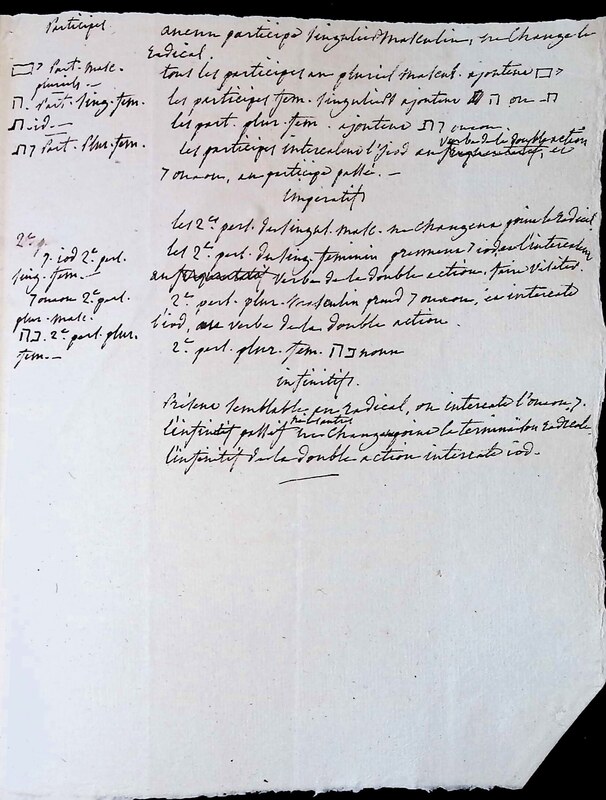 Participes
aucun participe singulier masculin, ne change le
Radical.
ם י Part. masc.
pluriels —
tous les participes au pluriel mascul. ajoutent ם י
ה. Part. sing. fem.
les participes fem. singuliers ajoutent ה ou ת
ת id. —
les part. plur. fem. ajoutent ת ו ouaou.
ת ו Part. Plur. fem.
verbe de la double action
les participes intercalent l'jod au, et
ו ouaou, au participe passé. —
Imperatifs
les 2.es pers. du singul. masc. ne changent point le Radical.
2.e p.
י. iod 2.e pers.
sing. fem. —
les 2.es pers. du sing. feminin prennent י iod, et l'intercalent
au verbe de la double action, faire visiter.
ו ouaou 2.e pers.
plur. masc.
2.e pers. plur. masculin prend ו ouaou, et intercale
l'iod, au verbe de la double action.
ה נ. 2.e pers. plur.
fem. —
2.e pers. plur. fem. ה נ noun
infinitifs.
Présent semblable au Radical, ou intercale l'ouaou ו.
l'infinitif passif ne change point la terminaison Radicale
l'infinitif de la double action intercale iod.